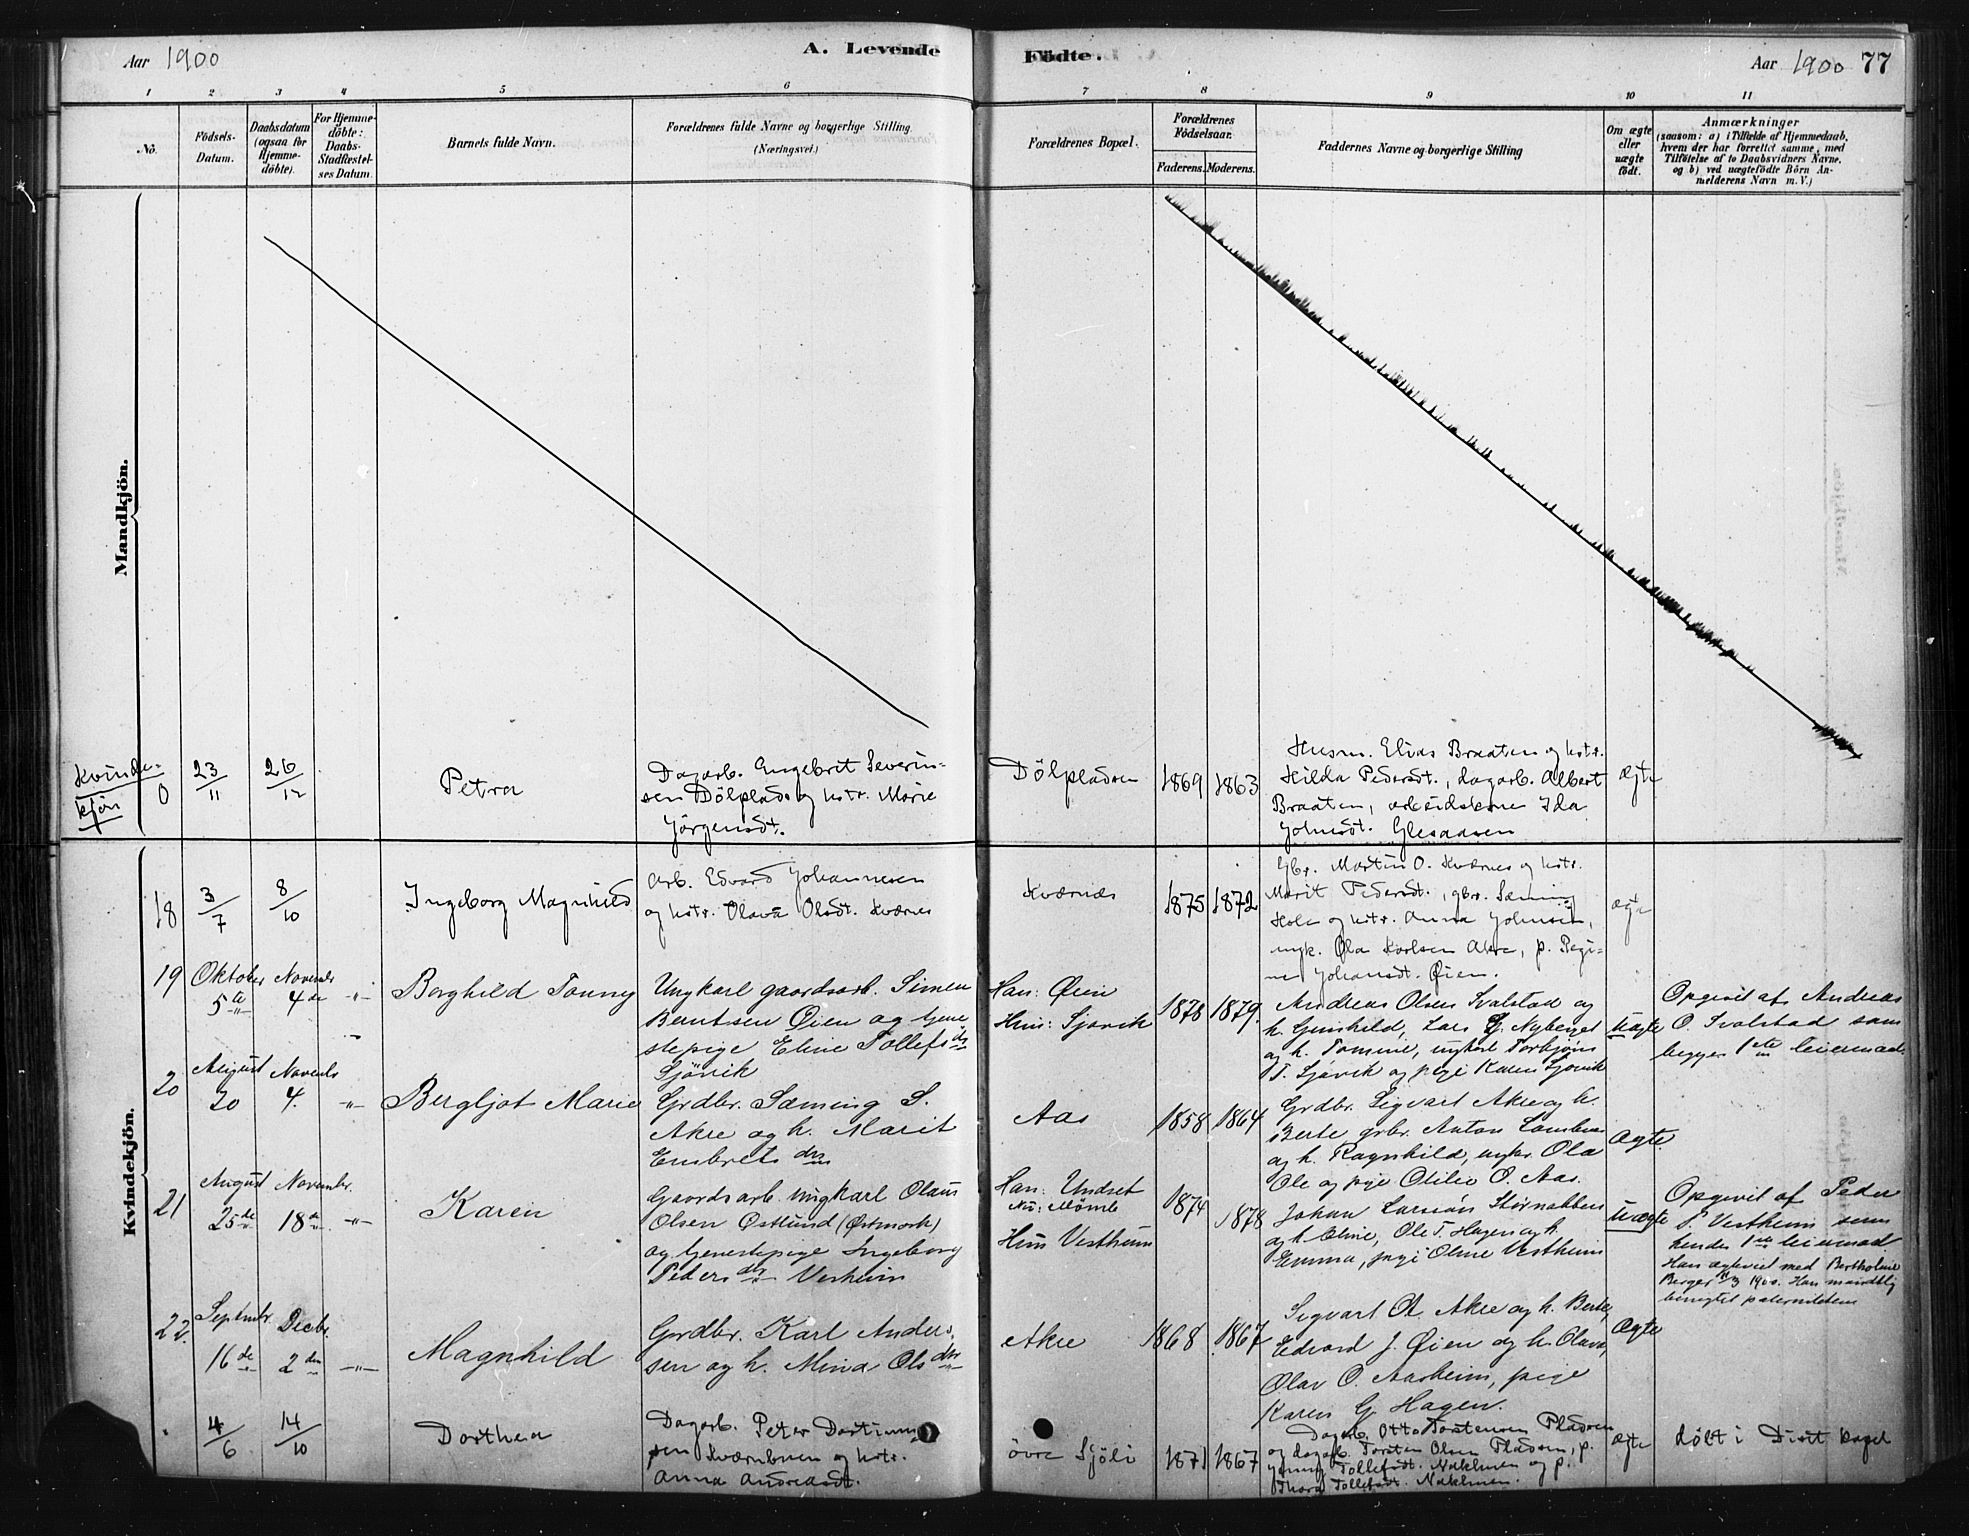 Aar 1900
A. Levende
Födte.
Aar 1900 77
1 2 3 4 5 6 7 8 9 10 11
No.
Födsels-
Datum.
Daabsdatum
(ogsaa for
Hjemme-
döbte).
For Hjemme-
döbte:
Daabs-
Stadfæstel-
ses Datum.
Barnets fulde Navn.
Forældrenes fulde Navne og borgerlige Stilling.
(Næringsvei.)
Forældrenes Bopæl.
Forældrenes
Födselsaar.
Faderens. Moderens.
Faddernes Navne og borgerlige Stilling
Om ægte
eller
uægte
födt.
Anmærkninger
(saasom: a) i Tilfælde af Hjemmedaab,
hvem der har forrettet samme, med
Tilföielse af to Daabsvidners Navne,
og b) ved uægtefödte Börn An-
melderens Navn m. V.)
Mandkjön.
Kvinde-
kjön
0
23/11
26/12
Petra
Dagarb. Engebret Severin-
sen Dölplads og kstr. Marie
Jörgensdt.
Dölpladsen
1869 1863
Husm. Elias Braaten og kstr.
Hilda Pedersdt., dagarb. Albert
Braaten, arbeidsk Ida
Johnsdt. Glesaasen
ægte
Kvindekjön.
18
3/7
8/10
Ingeborg Magnhild
Arb. Edvard Johannesen
og kstr. Olava Olsdt. Kværnes
Kværnæs
1875 1872
Gbr. Martin O. Kværnes og kstr.
Marit Pedersdt., gbr. Sæming
Hole og kstr. Anna Johnsen,
ungk. Ola Karlsen Akre, p. Regi-
ne Johansdt. Øien.
ægte
19
Oktober
5te
November
4de
-"-
Borghild Tonny
Ungkarl gaardsarb. Simen
Berntsen Øien og tjene
stepige Eline Tollefsdtr
Sjövik
Han: Øien
Hun: Sjøvik
1878 1879.
Andreas Olsen Svalstad og
h. Gunhild, Lars G. Nyberget
og h. Tomine, ungkarl Torbjørn
T. Sjøvik og pige Karen Sjøvik
Uægte
Opgivet af Andreas
O. Svalstad som
begges 1ste leiermaal
20
August
20
Novembr
4.
-"-
Bergljot Marie
Grdbr. Sæming S.
Akre og h. Marit
Embrets dtr
Aas
1858 1864
Grdbr. Sigvart Akre og h.
Berte, grbr. Anton
og h. Ragnhild, ungkr. Ola
Ole og pige Otilie O. Aas.
Ægte.
21
August
25de
Novembr.
18de
-"-
Karen
Gaardsarb. ungkarl Olaus
Olsen Østlund (Østmork)
og tjenestepige Ingeborg
Peders dtr Vestheim
Han: Undset
Nu: Mömb
Hun Vestheim
1874 1878
Johan Larssön Störnabben
og h. Eline, Ole T. Hagen og h.
Emma, pige Oline Vestheim
Uægte
Opgivet af Peder
P. Vestheim som
hendes 1ste leiermaal
Han ægteviet med Bertholine
Berger 1900. Han mundtlig
benegtet paterniteten
22.
Septembr
16de
Decbr.
2den
-"-
Magnhild
Gordbr. Karl Anders-
sen og h. Mina Olsdtr
Akre
1868 1867
Sigvart O. Akre og h. Berte,
Edvard J. Øien og h. Olava,
Olav O. Aasheim, pige
Karen G. Hagen.
Ægte
4/6
14/10
Dorthea
Dagarb. Peter
sen Kværnbroen og kstr.
Anna Andreasdt.
övre Sjöli
1871 1867
Dagarb. Otto Torstensen Pladsen
og dagarb. Torsten Olsen Pladsen, p.
Jenny Tollefsdt. Naklmoen og p.
Thora Tollefsdt. Naklmoen.
ægte
döbt i Distr kapel